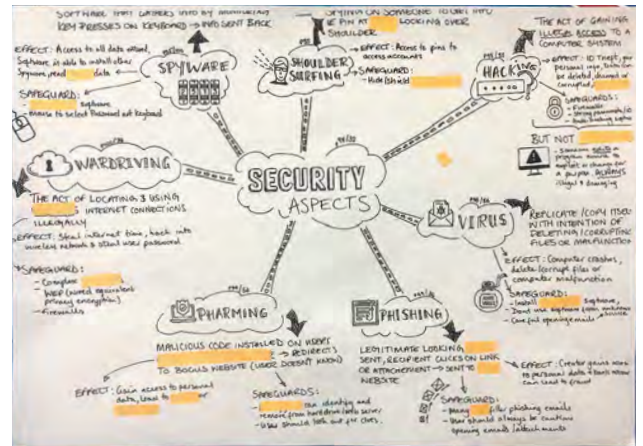 SOFTWARE THAT GATHERS INFO BY MONITORING
KEY PRESSES ON KEYBOARD → INFO SENT BACK
EFFECT: Access to all data
Software is able to install other
Spyware, read data
SAFEGUARD:
- Software
- Mouse to select Password not keyboard
SPYWARE
SPYING ON SOMEONE TO GET INTO
IE PIN AT LOOKING OVER
SHOULDER
→ EFFECT: Access to pins to
access accounts
SAFEGUARD:
- Hide/shield
SHOULDER
SURFING
THE ACT OF GAINING
ILLEGAL ACCESS TO A
COMPUTER SYSTEM
→ EFFECT: ID Theft,
personal info,
be deleted, changed or
corrupted,
SAFEGUARDS:
- Firewalls
- Strong passwords/
HACKING
BUT NOT
- Someone
program source to
exploit or change for
a purpose, ALWAYS
illegal & damaging
WARDRIVING
THE ACT OF LOCATING & USING
INTERNET CONNECTIONS
ILLEGALLY
EFFECT: Steal internet time, hack into
wireless network & steal user password.
SAFEGUARD:
- Complex
- WEP (wired equivalent
privacy encryption)
- Firewalls
SECURITY
ASPECTS
VIRUS
REPLICATE/COPY ITSELF
WITH INTENTION OF
DELETING/CORRUPTING
FILES OR MALFUNCTION
EFFECT: Computer crashes,
delete/corrupt files or
computer malfunction
SAFEGUARD:
- Install Software,
- Dont use software from unknown
source
- Careful opening emails
PHARMING
MALICIOUS CODE INSTALLED ON USERS
→ REDIRECTS
TO BOGUS WEBSITE (USER DOESN'T KNOW)
EFFECT: Gain access to personal
data, lead to or
SAFEGUARDS:
- can identify and
remove from harddrive/web server
- User should look out for clues.
PHISHING
LEGITIMATE LOOKING
SENT, RECIPIENT CLICKS ON LINK
OR ATTACHEMENT → SENT TO
WEBSITE
EFFECT: Creator gains access
to personal data & bank
can lead to fraud
SAFEGUARD:
- Many filter phishing emails
- User should always be cautious
opening emails/attachments